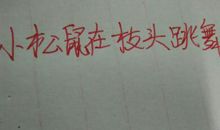 小松鼠在枝头跳舞